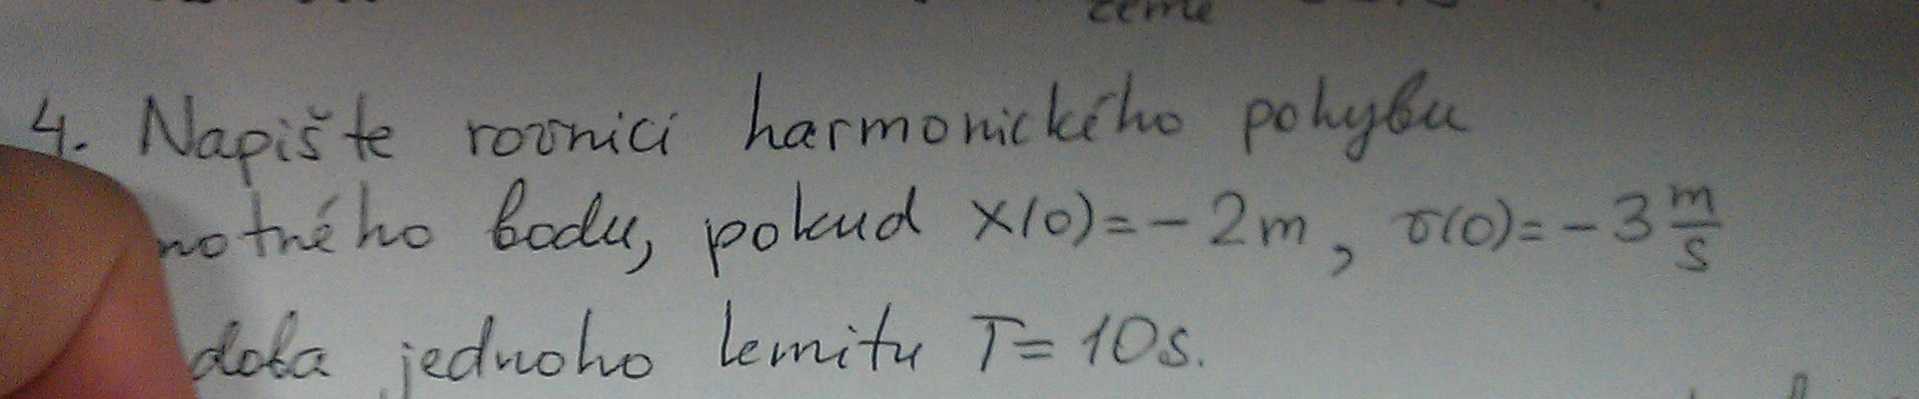 země
4. Napište rovnici harmonického pohybu
motného bodu, pokud x(0)=-2m, v(0)=-3 m/s
doba jednoho kmitu T=10s.